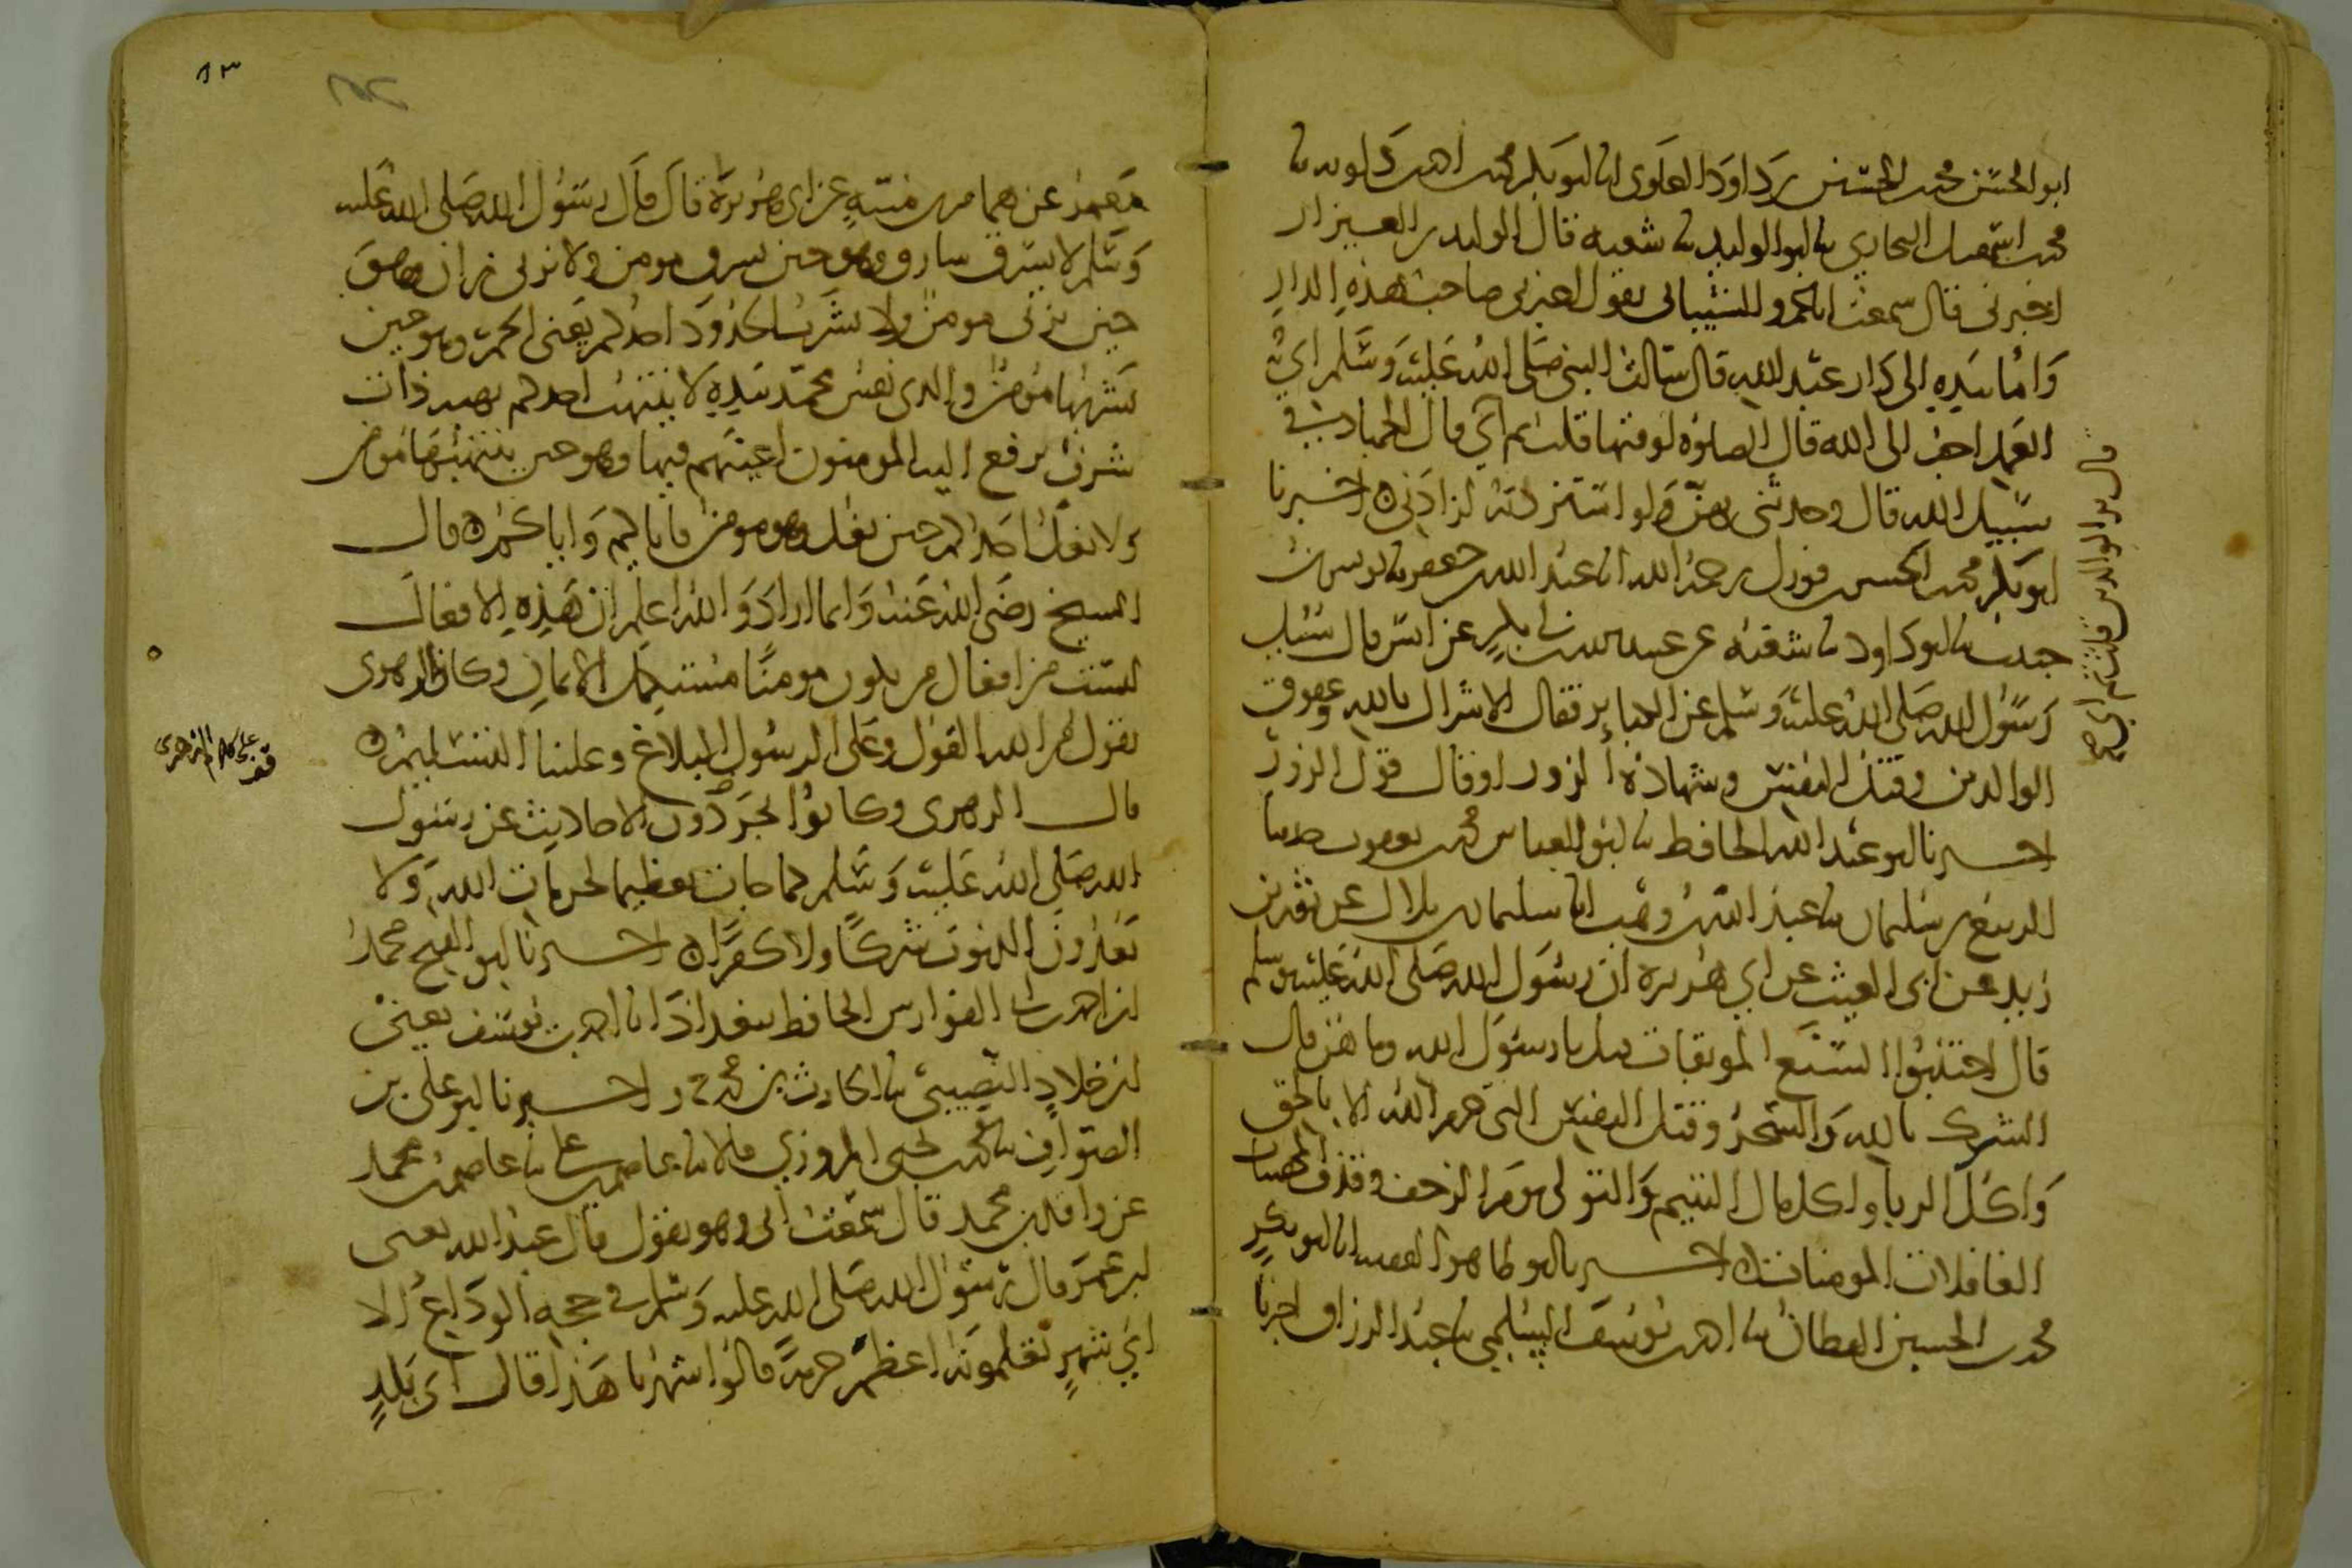 ابو الحسن محمد بن الحسين بن داود العلوي انا ابو بكر محمد بن احمد بن دلويه نا
محمد بن اسمعيل البخاري نا ابو الوليد نا شعبه قال الوليد بن العيزار
اخبرني قال سمعت ابا عمرو الشيباني يقول اخبرني صاحب هذه الدار
وَاومأ بيده الى دار عبد الله قال سالت النبي صلى الله عليه وسلم اي
العمل احب الى الله قال الصلوه لوقتها قلت ثم اي قال الجهاد في
سبيل الله قال وحدثني بهن ولو استزدته لزادني اخبرنا
ابو بكر محمد بن الحسن بن فورك رحمه الله انا عبد الله بن جعفر نا يونس بن
حبيب نا ابو داود نا شعبه عن عبيد الله بن ابي بكر عن انس قال سئل
رسول الله صلى الله عليه وسلم عن الكبائر فقال الاشراك بالله وعقوق
الوالدين وقتل النفس وشهادة الزور او قال قول الزور
اخبرنا ابو عبد الله الحافظ نا ابو العباس محمد بن يعقوب حدثنا
الربيع بن سليمان نا عبد الله بن وهب انا سليمان بن بلال عن ثور بن
زيد عن ابي الغيث عن ابي هريره ان رسول الله صلى الله عليه وسلم
قال اجتنبوا السبع الموبقات قيل يا رسول الله وما هن قال
الشرك بالله والسحر وقتل النفس التي حرم الله الا بالحق
وَاكل الربا واكل مال اليتيم والتولي يوم الزحف وقذف المحصنات
الغافلات المومنات اخبرنا ابو طاهر الفقيه انا ابو بكر
محمد بن الحسين القطان نا احمد بن يوسف السلمي نا عبد الرزاق اخبرنا
قال بر الوالدين قلت ثم اي
١٣
معمر عن همام بن منبه عن ابي هريرة قال قال رسول الله صلى الله عليه
وسلم لا يسرق سارق وهو حين يسرق مومن ولا يزني زان وهو
حين يزني مومن ولا يشرب الحدود احدكم يعني الخمر وهو حين
يشربها مومن والذي نفس محمد بيده لا ينتهب احدكم نهبه ذات
شرف يرفع اليه المومنون اعينهم فيها وهو حين ينتهبها مومن
ولا يغل احدكم حين يغل وهو مومن فاياكم واياكم قال
الشيخ رضي الله عنه وانما اراد والله اعلم ان هذه الافعال
ليست من افعال من يكون مومنا مستكمل الايمان وكان الزهري
يقول من الله القول وعلى الرسول البلاغ وعلينا التسليم
قال الزهري وكانوا يجردون الاحاديث عن رسول
الله صلى الله عليه وسلم كما جات تعظيما لحرمات الله ولا
يعدون الذنوب شركا ولا كفرا اخبرنا ابو الفتح محمد
بن احمد بن ابي الفوارس الحافظ ببغداد انا احمد بن يوسف يعني
بن خلاد النصيبي نا الحارث بن محمد ح واخبرنا ابو علي بن
الصواف نا محمد بن يحيى المروزي قالا نا عاصم بن علي نا عاصم بن محمد
عن واقد بن محمد قال سمعت ابي وهو يقول قال عبد الله يعني
ابن عمر قال رسول الله صلى الله عليه وسلم في حجه الوداع الا
اي شهر تعلمونه اعظم حرمة قالوا شهرنا هذا قال اي بلد
قف على كلام الزهري